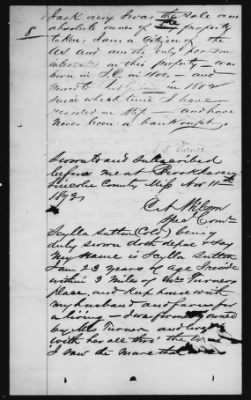 5
Jack any horse the sole and
absolute owner of my property
taken. I am a citizen of the
US and am the only person
interested in this property - was
born in S.C. in 1802 - and
moved in 1802
since which time I have
resided in Miss and have
never been a bankrupt.
Turner
Sworn to and subscribed
before me at Brookhaven
Lincoln County Miss Nov 11th
1873,
Wilson
Spe Comr
Scylla Sutton (Col'd) being
duly sworn doth depose & say
My name is Scylla Sutton
I am 23 years of age I reside
within 3 miles of Mr Turners
place, and keep house with
my husband and farm for
a living - I was formerly owned
by Mr Turner and lived
with her all thro' the War
I saw the mare that